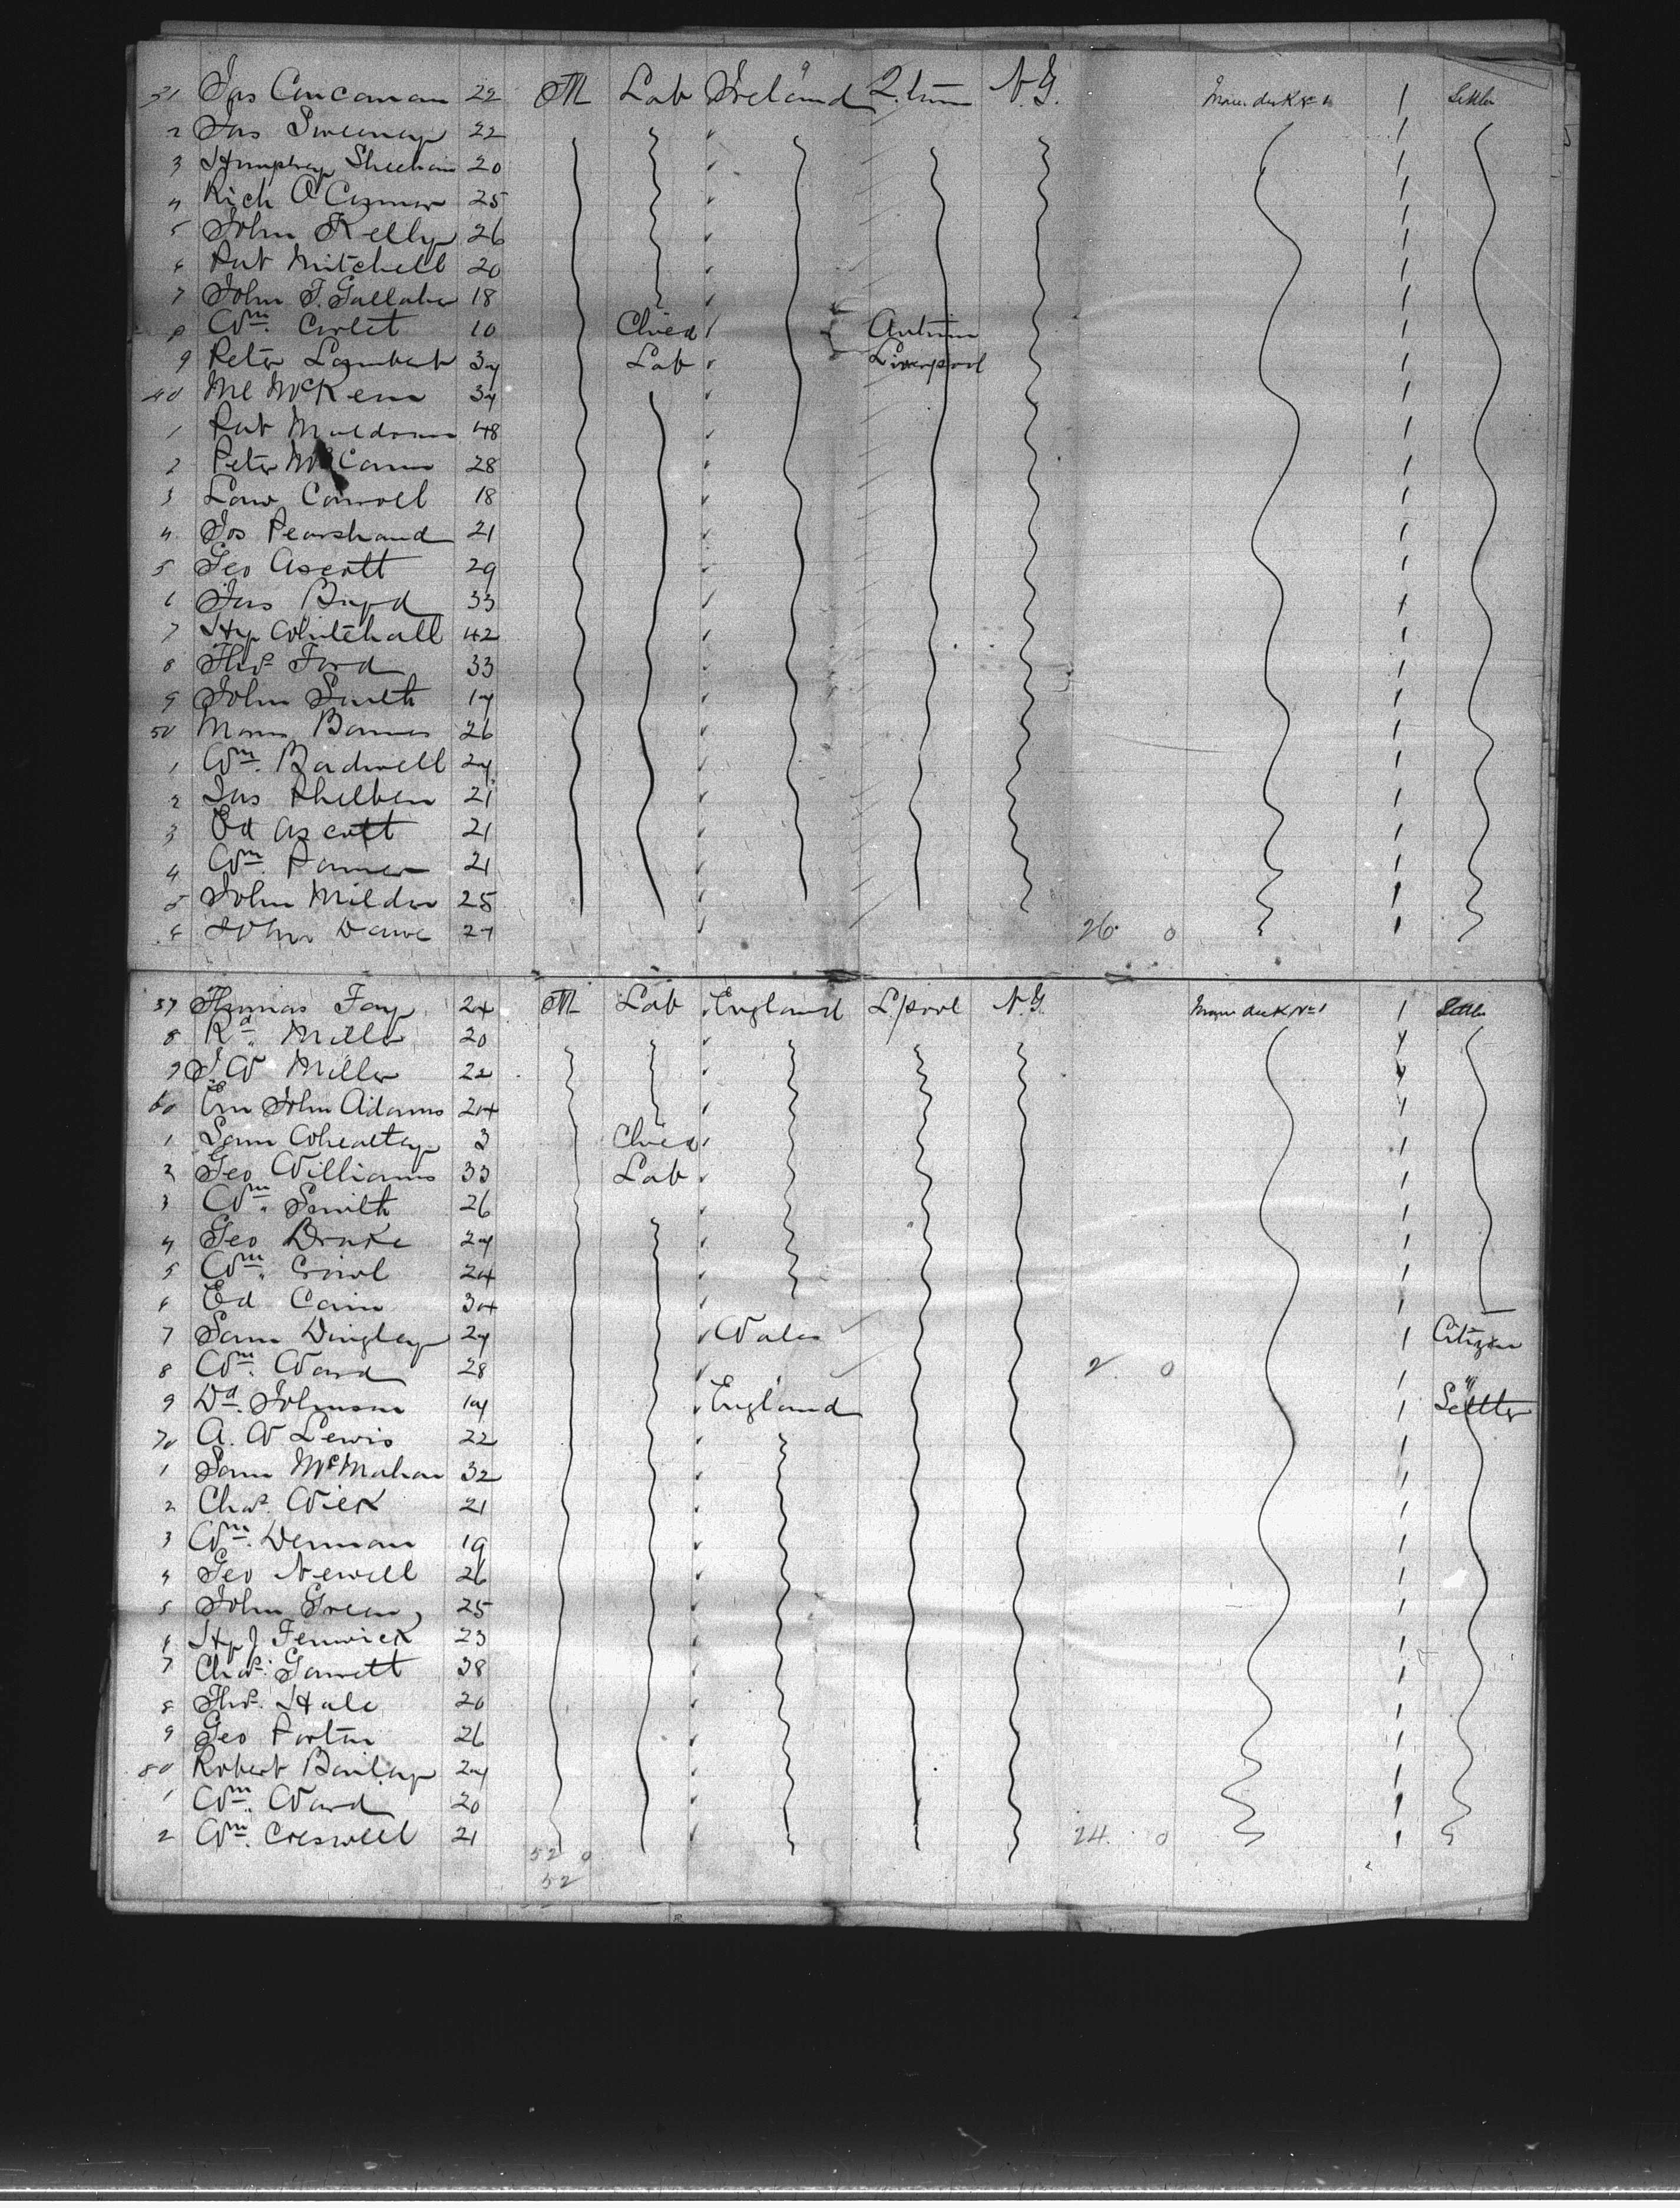 31 Jas Concannan 22 M Lab Ireland Q.town N.Y. Main deck No 1 1 Settler
2 Jas Sweeney 22
3 Humphrey Sheehan 20
4 Rich O'Connor 25
5 John Kelly 26
6 Pat Mitchell 20
7 John F. Gallaher 18
8 Wm. Corlet 10 Child Antrim
9 Peter Lambert 34 Lab Liverpool
40 Ml McKenn 34
1 Pat Muldoon 48
2 Peter McCann 28
3 Law Carroll 18
4 Jos Pearshand 21
5 Geo Ascott 29
6 Jas Boyd 33
7 Hy Whitehall 42
8 Thos Ford 33
9 John Smith 19
50 Barnes 26
1 Wm. Bardwell 24
2 Jas Philben 21
3 Ed Ascott 21
4 Wm. 21
5 John Milder 25
6 John Dawe 27 26. 0
57 Thomas Fay 24 M Lab England L/pool N.Y. Main deck No 1 1 Settler
8 Rd. Miller 20
9 J W Miller 22
60 Em John Adams 24
1 Sam Whealtey 3 Child
2 Geo Williams 33 Lab
3 Wm. Smith 26
4 Geo Drake 24
5 Wm. 24
6 Ed Cain 34
7 Sam Dingley 24 Wales Citizen
8 Wm. Ward 28 2. 0 "
9 Dd. Johnson 19 England Settler
70 A. W Lewis 22
1 Sam McMahan 32
2 Chas. Wick 21
3 Wm. Denman 19
4 Geo Newell 26
5 John Green 25
6 Hy J Fenwick 23
7 Chas. Garrett 38
8 Thos. Hale 20
9 Geo Porter 26
80 Robert Bailey 24
1 Wm. Ward 20
2 Wm. Creswell 21 24. 0
52 0
52